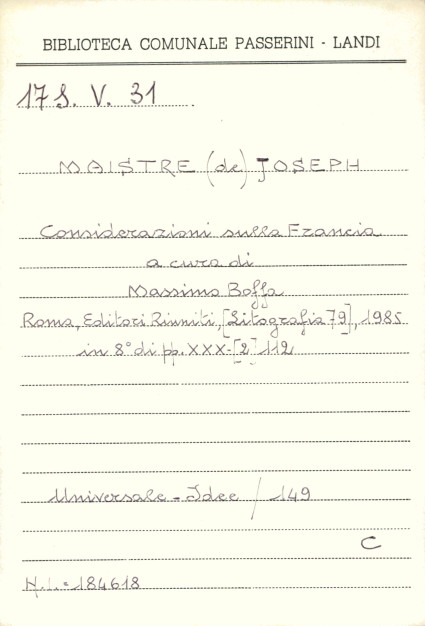 BIBLIOTECA COMUNALE PASSERINI - LANDI
17 S. V. 31
MAISTRE (de) JOSEPH
Considerazioni sulla Francia
a cura di
Massimo Boffa
Roma, Editori Riuniti, [Litografia 79], 1985
in 8° di pp. XXX-[2] 112
Universale - Idee / 149
C
N.I. = 184618